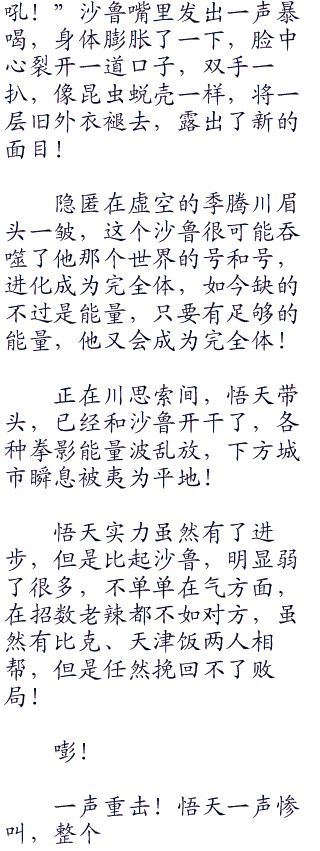 吼！”沙鲁嘴里发出一声暴
喝，身体膨胀了一下，脸中
心裂开一道口子，双手一
扒，像昆虫蜕壳一样，将一
层旧外衣褪去，露出了新的
面目！
隐匿在虚空的季腾川眉
头一皱，这个沙鲁很可能吞
噬了他那个世界的号和号，
进化成为完全体，如今缺的
不过是能量，只要有足够的
能量，他又会成为完全体！
正在川思索间，悟天带
头，已经和沙鲁开干了，各
种拳影能量波乱放，下方城
市瞬息被夷为平地！
悟天实力虽然有了进
步，但是比起沙鲁，明显弱
了很多，不单单在气方面，
在招数老辣都不如对方，虽
然有比克、天津饭两人相
帮，但是任然挽回不了败
局！
嘭！
一声重击！悟天一声惨
叫，整个